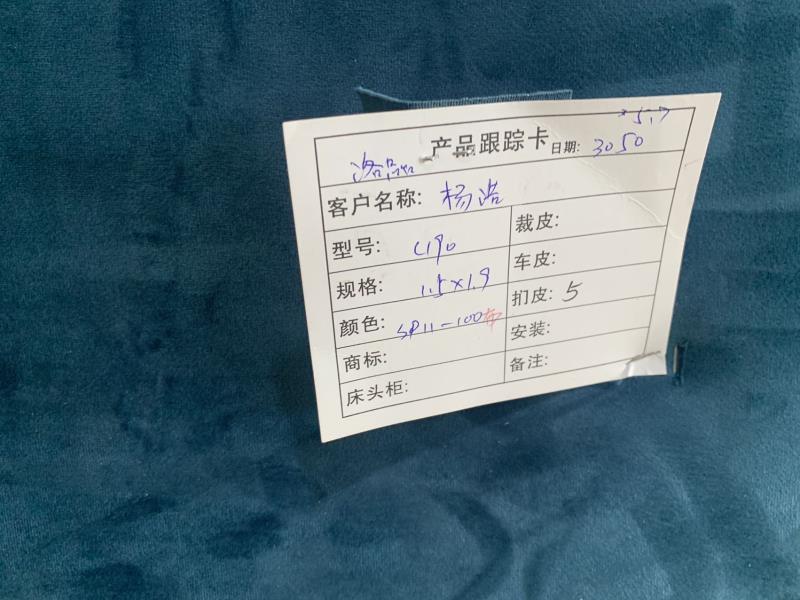 5.7
产品跟踪卡 日期: 3050
客户名称: 杨浩
型号: C190
裁皮:
规格: 1.5×1.9
车皮:
颜色: SP11-100布
扪皮: 5
商标:
安装:
床头柜:
备注: